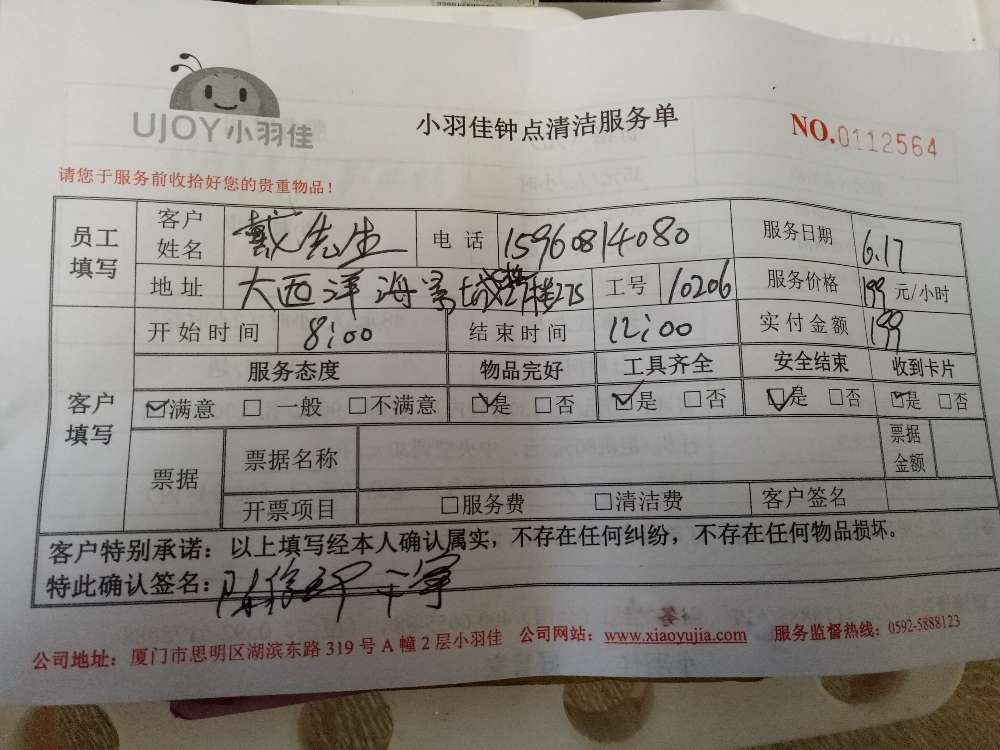 UJOY小羽佳
小羽佳钟点清洁服务单
NO.0112564
请您于服务前收拾好您的贵重物品！
员工填写 客户姓名 戴先生 电话 15960814080 服务日期 6.17
地址 大西洋海景城 275 工号 10206 服务价格 199元/小时
客户填写 开始时间 8:00 结束时间 12:00 实付金额 199
服务态度 物品完好 工具齐全 安全结束 收到卡片
☑满意 □一般 □不满意 ☑是 □否 ☑是 □否 ☑是 □否 ☑是 □否
票据 票据名称 票据金额
开票项目 □服务费 □清洁费 客户签名
客户特别承诺：以上填写经本人确认属实，不存在任何纠纷，不存在任何物品损坏。
特此确认签名：
公司地址：厦门市思明区湖滨东路319号A幢2层小羽佳 公司网站：www.xiaoyujia.com 服务监督热线：0592-5888123